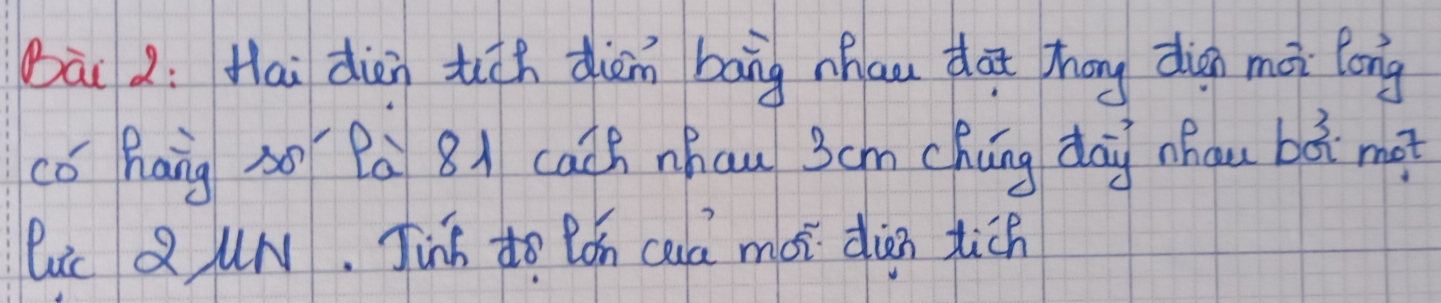 Bài 2: Hai điện tích điểm bằng nhau đặt trong điện môi lỏng
có hằng số là 81 cách nhau 3cm chúng đẩy nhau bởi một
lực 2 μN. Tính độ lớn của mỗi điện tích